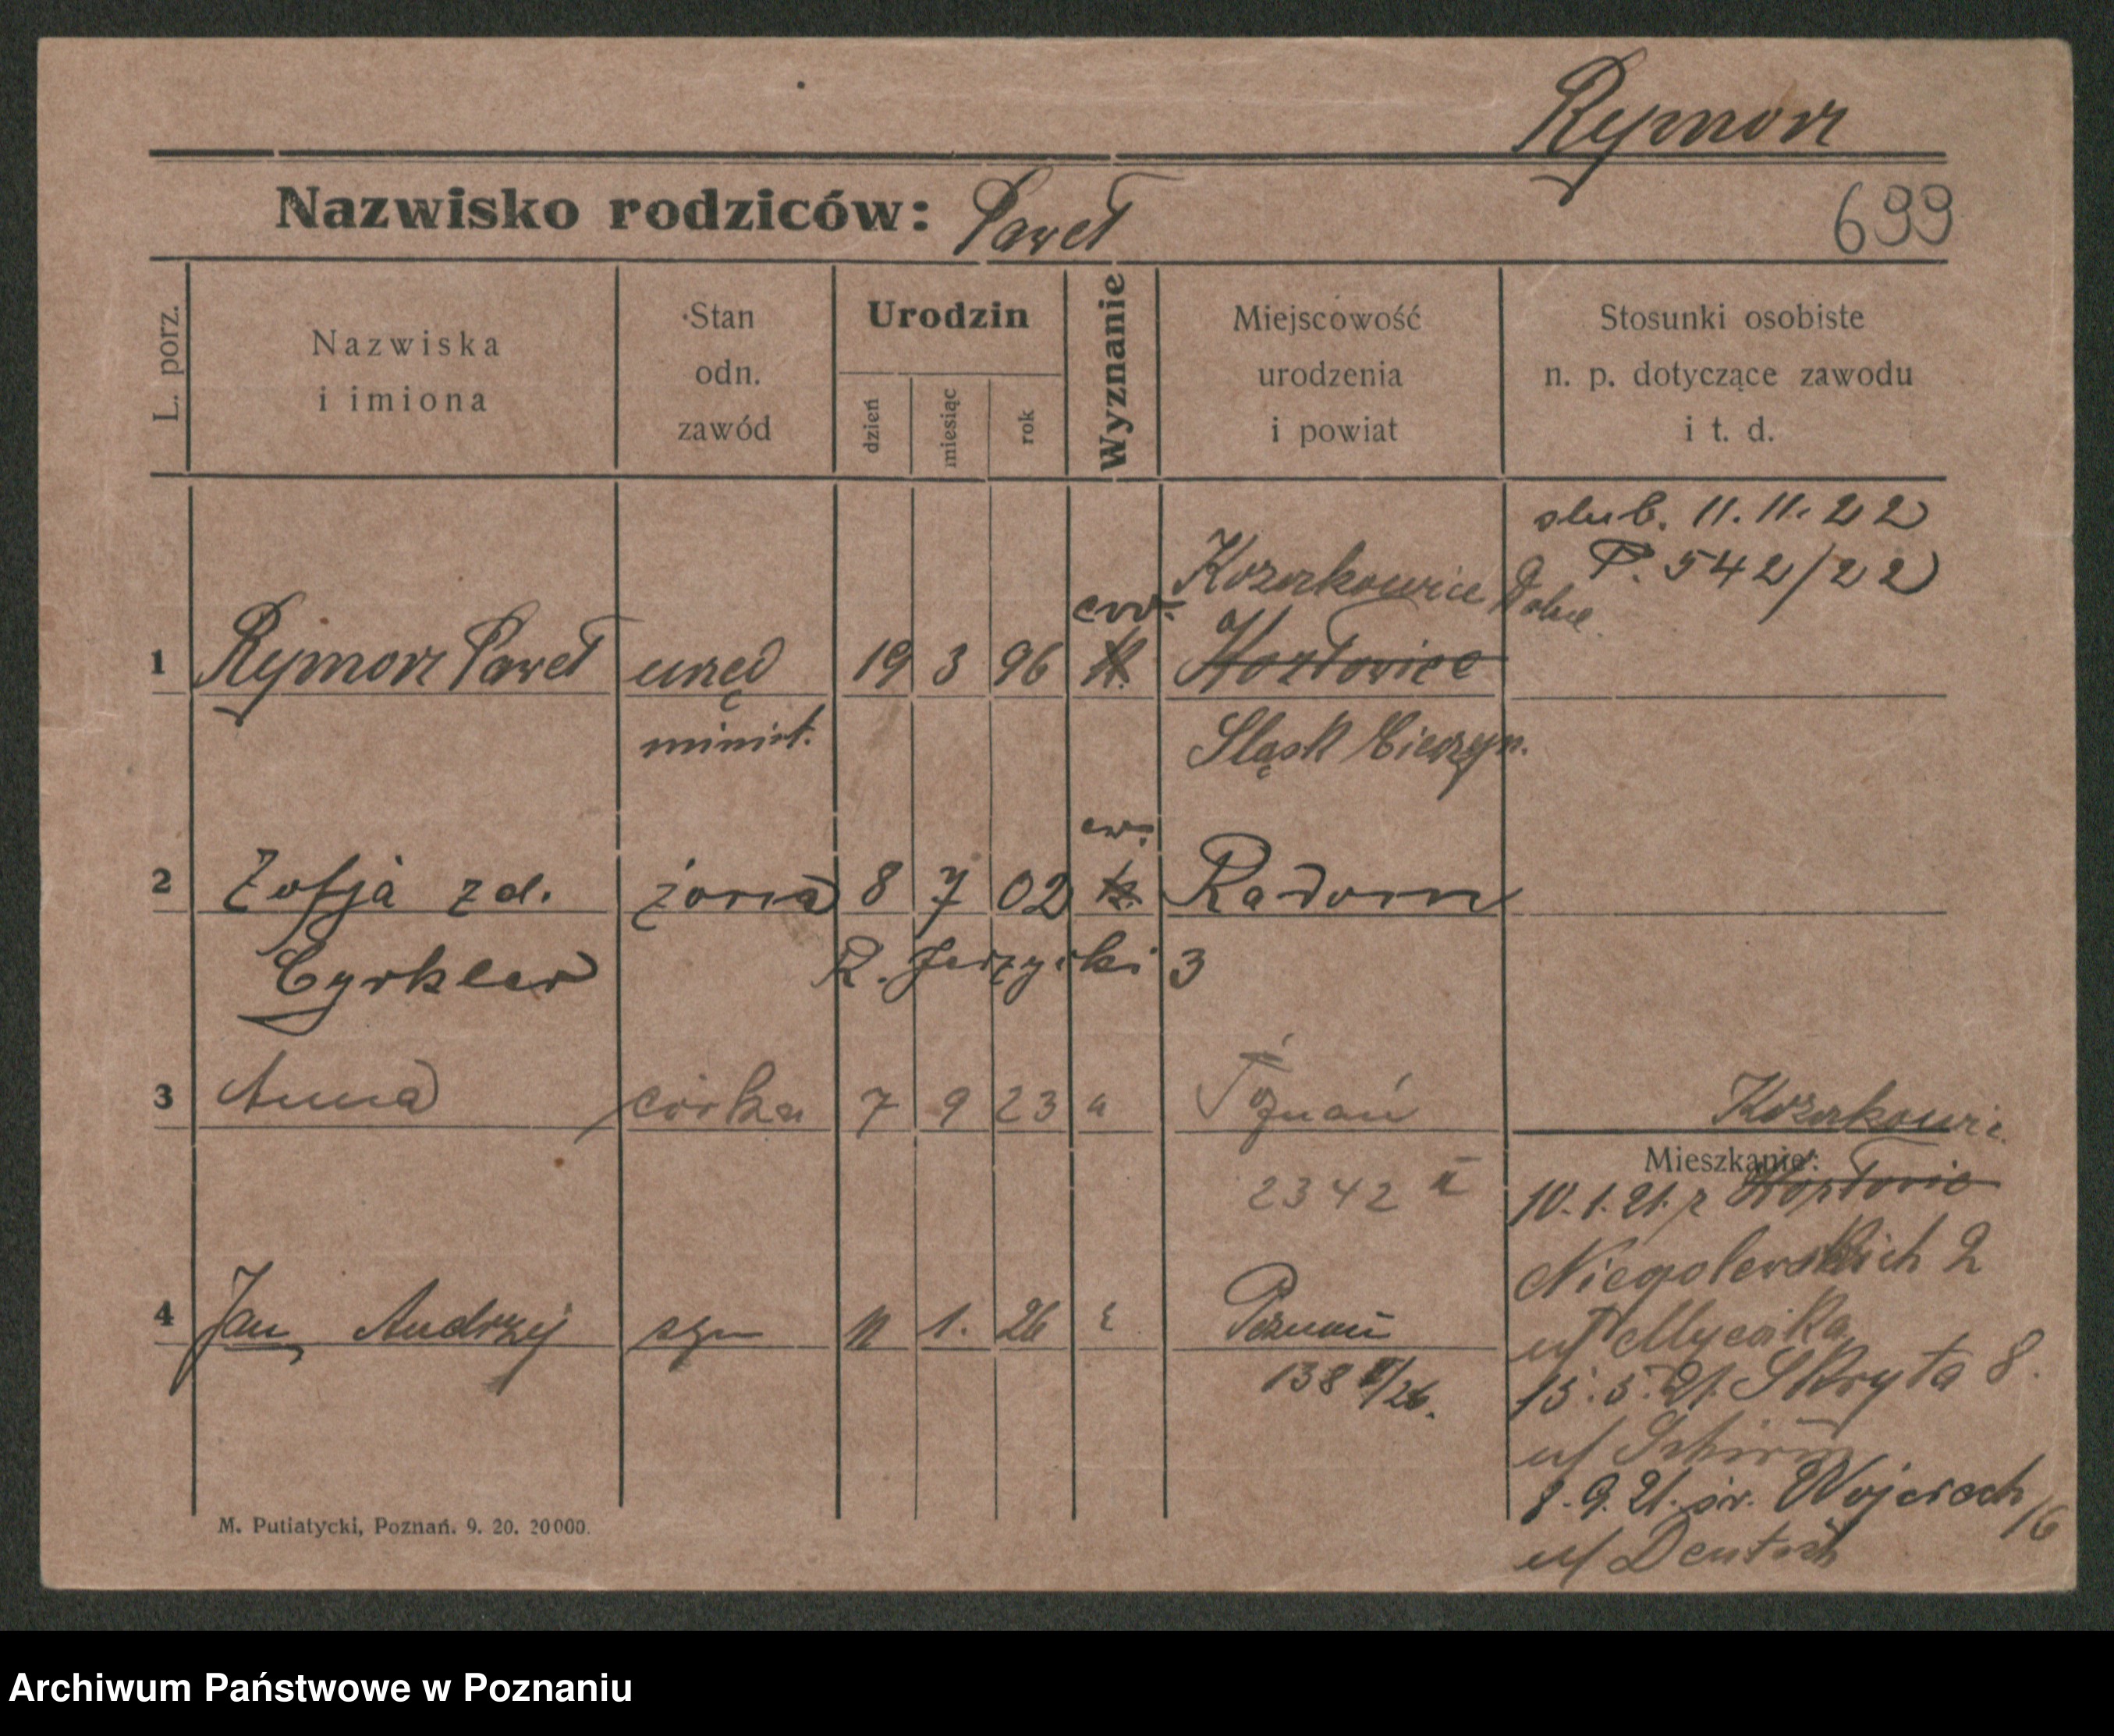 Rymorz
Nazwisko rodziców: Paweł
699
L. porz.
Nazwiska
i imiona
Stan
odn.
zawód
Urodzin
dzień
miesiąc
rok
Wyznanie
Miejscowość
urodzenia
i powiat
Stosunki osobiste
n. p. dotyczące zawodu
i t. d.
slub. 11.11.22
P. 542/22
Kozakowice Dolne
ew.
1 Rymorz Paweł urzęd 19 3 96 k.
minist. Sląsk Cieszyn.
ew.
2 Zofja zd. żona 8 7 02 k. Radom
Cyrkler R. Jerzycki 3
3 Anna córka 7 9 23 Poznań
Kozakowic
2342 II
Mieszkanie:
10.1.21. z
Niegolewskich 2
4 Jan Andrzej syn 11 1. 26 Poznań
u/
138 /26.
15.5.21. Skryta 8.
u/
8.9.21. św. Wojciech 16
u/ Deutsch
M. Putiatycki, Poznań. 9. 20. 20000.
Archiwum Państwowe w Poznaniu